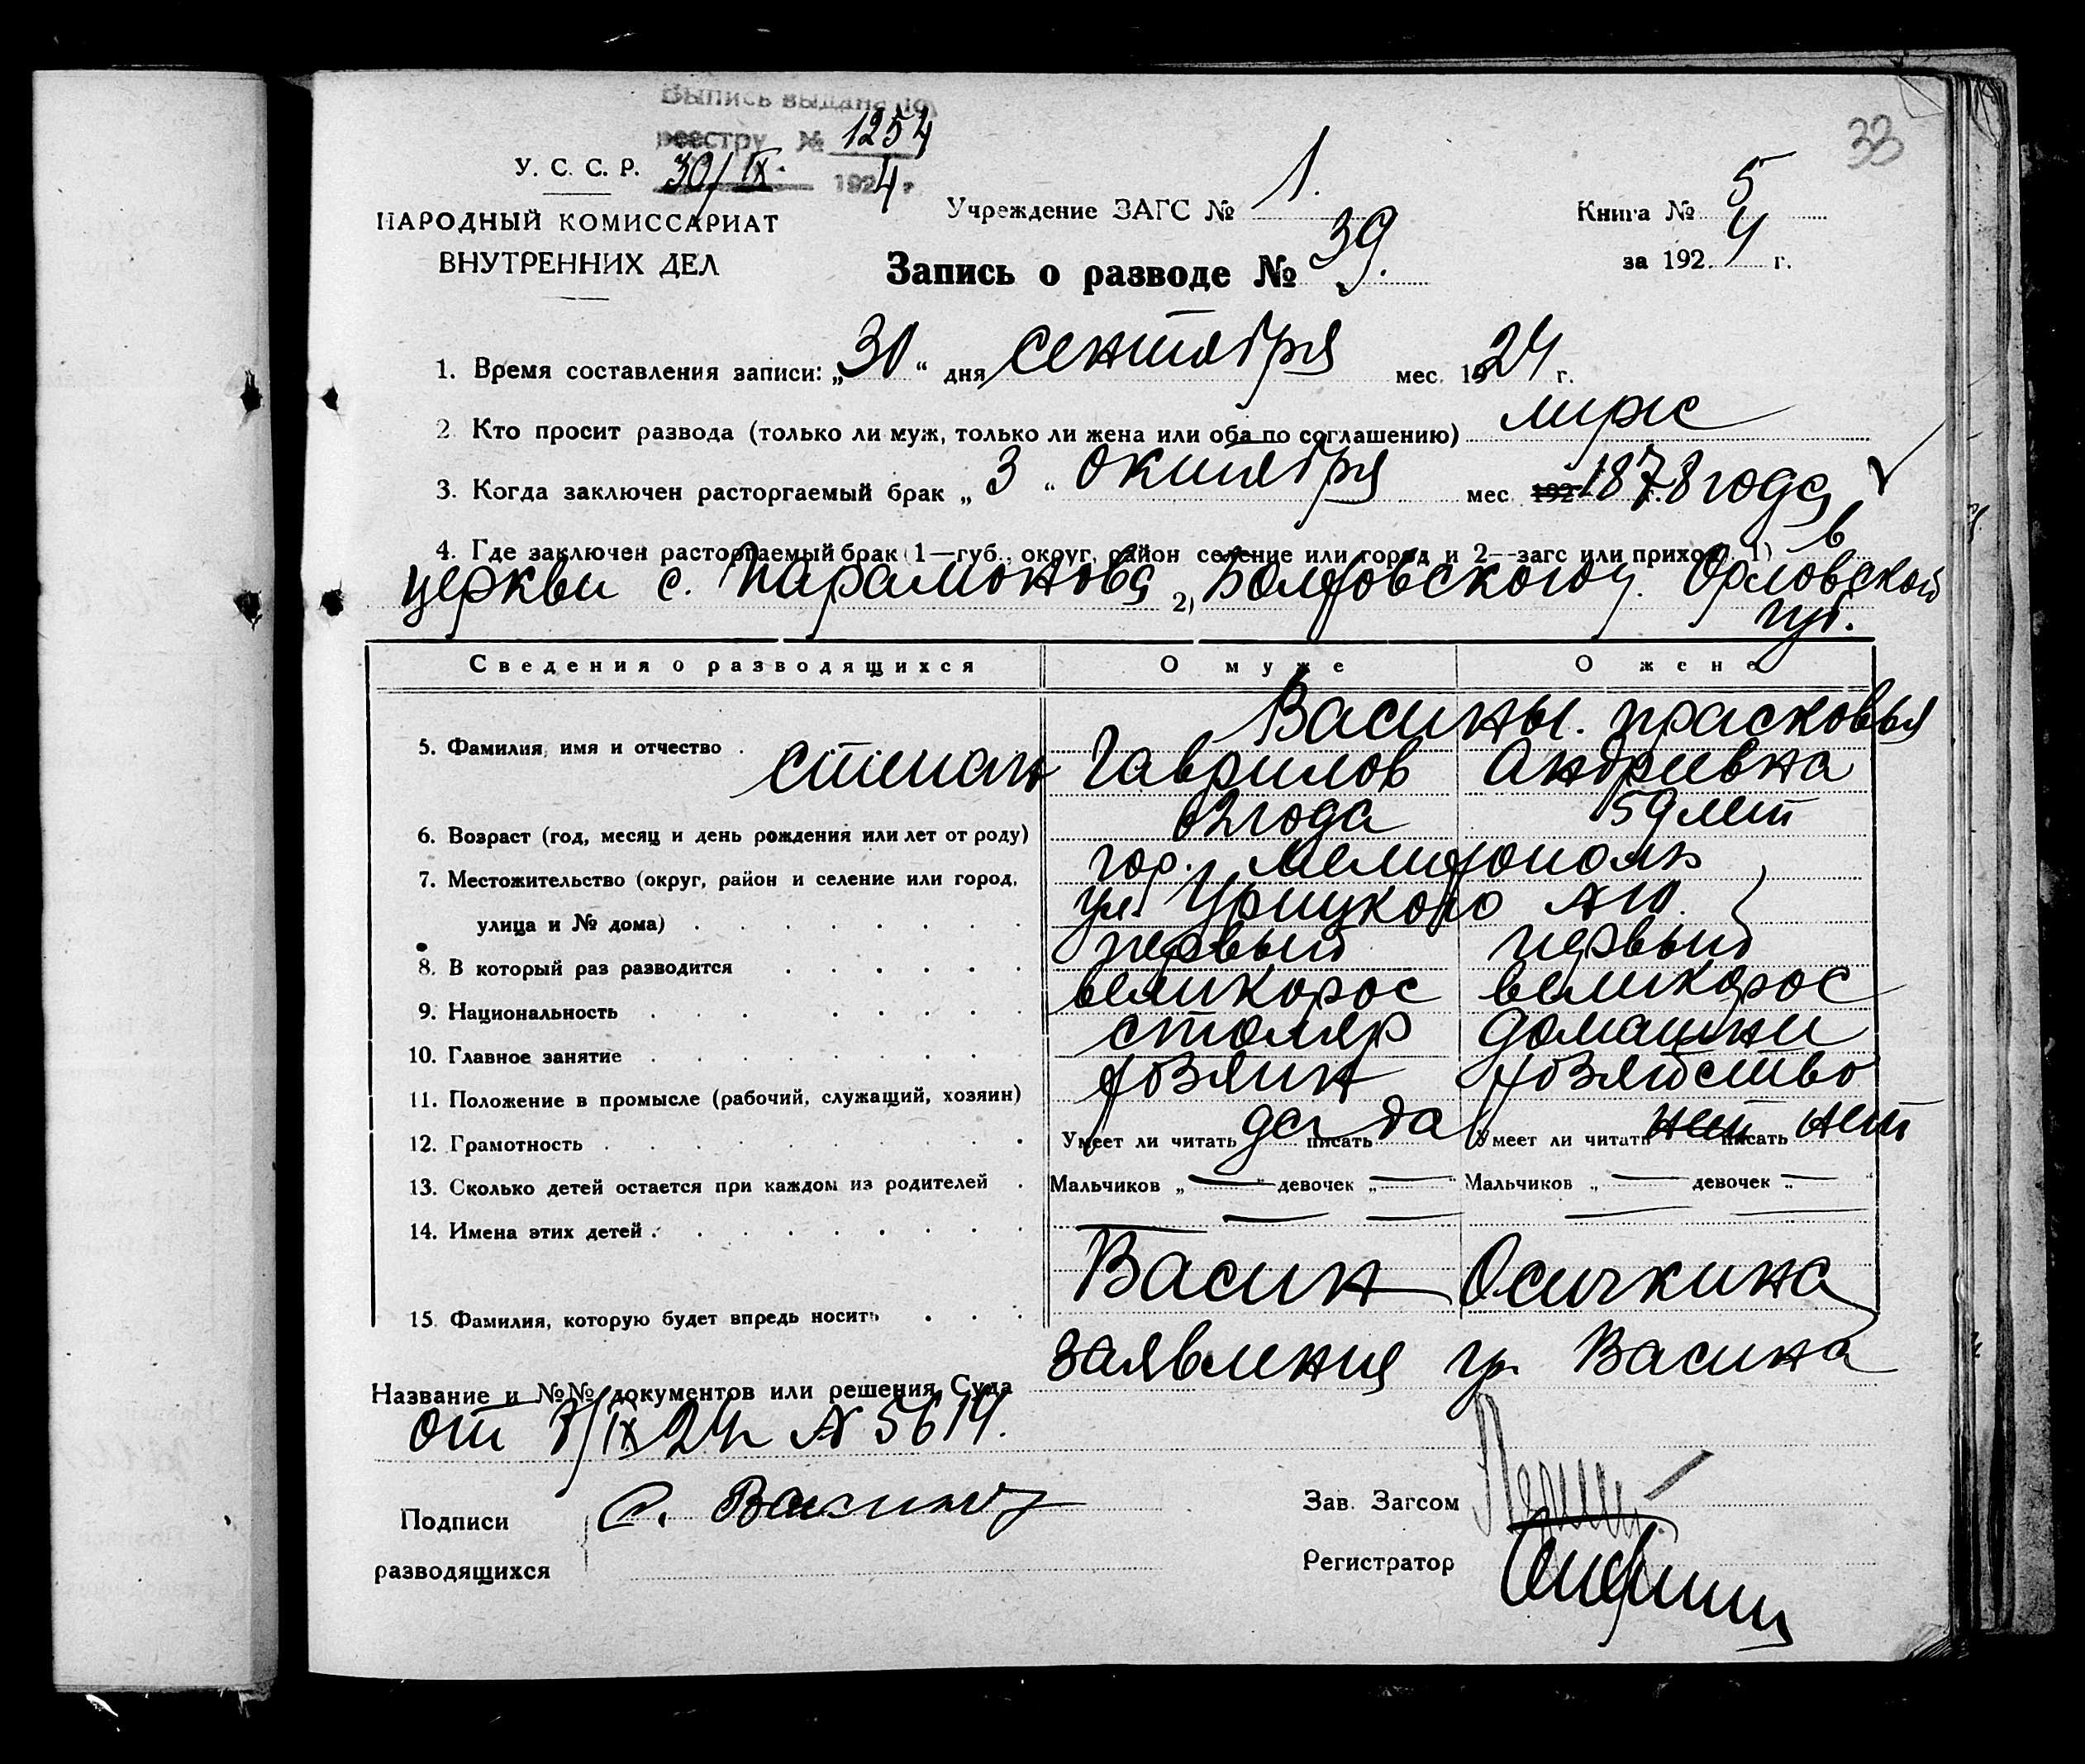 Выпись выдана по
реестру № 1254
30/IX. 1924 г.
33
У. С. С. Р.
НАРОДНЫЙ КОМИССАРИАТ
ВНУТРЕННИХ ДЕЛ
Учреждение ЗАГС № 1.
Книга № 5
за 1924 г.
Запись о разводе № 39.
1. Время составления записи: „30“ дня сентября мес. 1924 г.
2 Кто просит развода (только ли муж, только ли жена или оба по соглашению) муж
3. Когда заключен расторгаемый брак „3“ октября мес. 192 1878 года
4. Где заключен расторгаемый брак (1—губ., округ, район селение или город и 2—загс или приход. 1) в
церкви с. Парамонова 2) Болховского у. Орловской
губ.
Сведения о разводящихся О муже О жене
Васины. Прасковья
5. Фамилия, имя и отчество . Степан Гаврилов Андреевна
6. Возраст (год, месяц и день рождения или лет от роду) 62 года 59 лет
7. Местожительство (округ, район и селение или город, гор. Мелитополь
улица и № дома) ул. Урицкого №10.
8. В который раз разводится первый первый
9. Национальность великорос великорос
10. Главное занятие столяр домашни
11. Положение в промысле (рабочий, служащий, хозяин) хозяин хозяйство
12. Грамотность Умеет ли читать да писать да Умеет ли читать нет писать нет
13. Сколько детей остается при каждом из родителей . Мальчиков „ — “ девочек „ — “ Мальчиков „ — девочек „ — “
14. Имена этих детей . — — — — —
15. Фамилия, которую будет впредь носить Васин Осичкина
Название и №№ документов или решения Суда заявления гр. Васина
от 3/IX 24 г № 5614.
Подписи С. Васин
разводящихся
Зав. Загсом
Регистратор